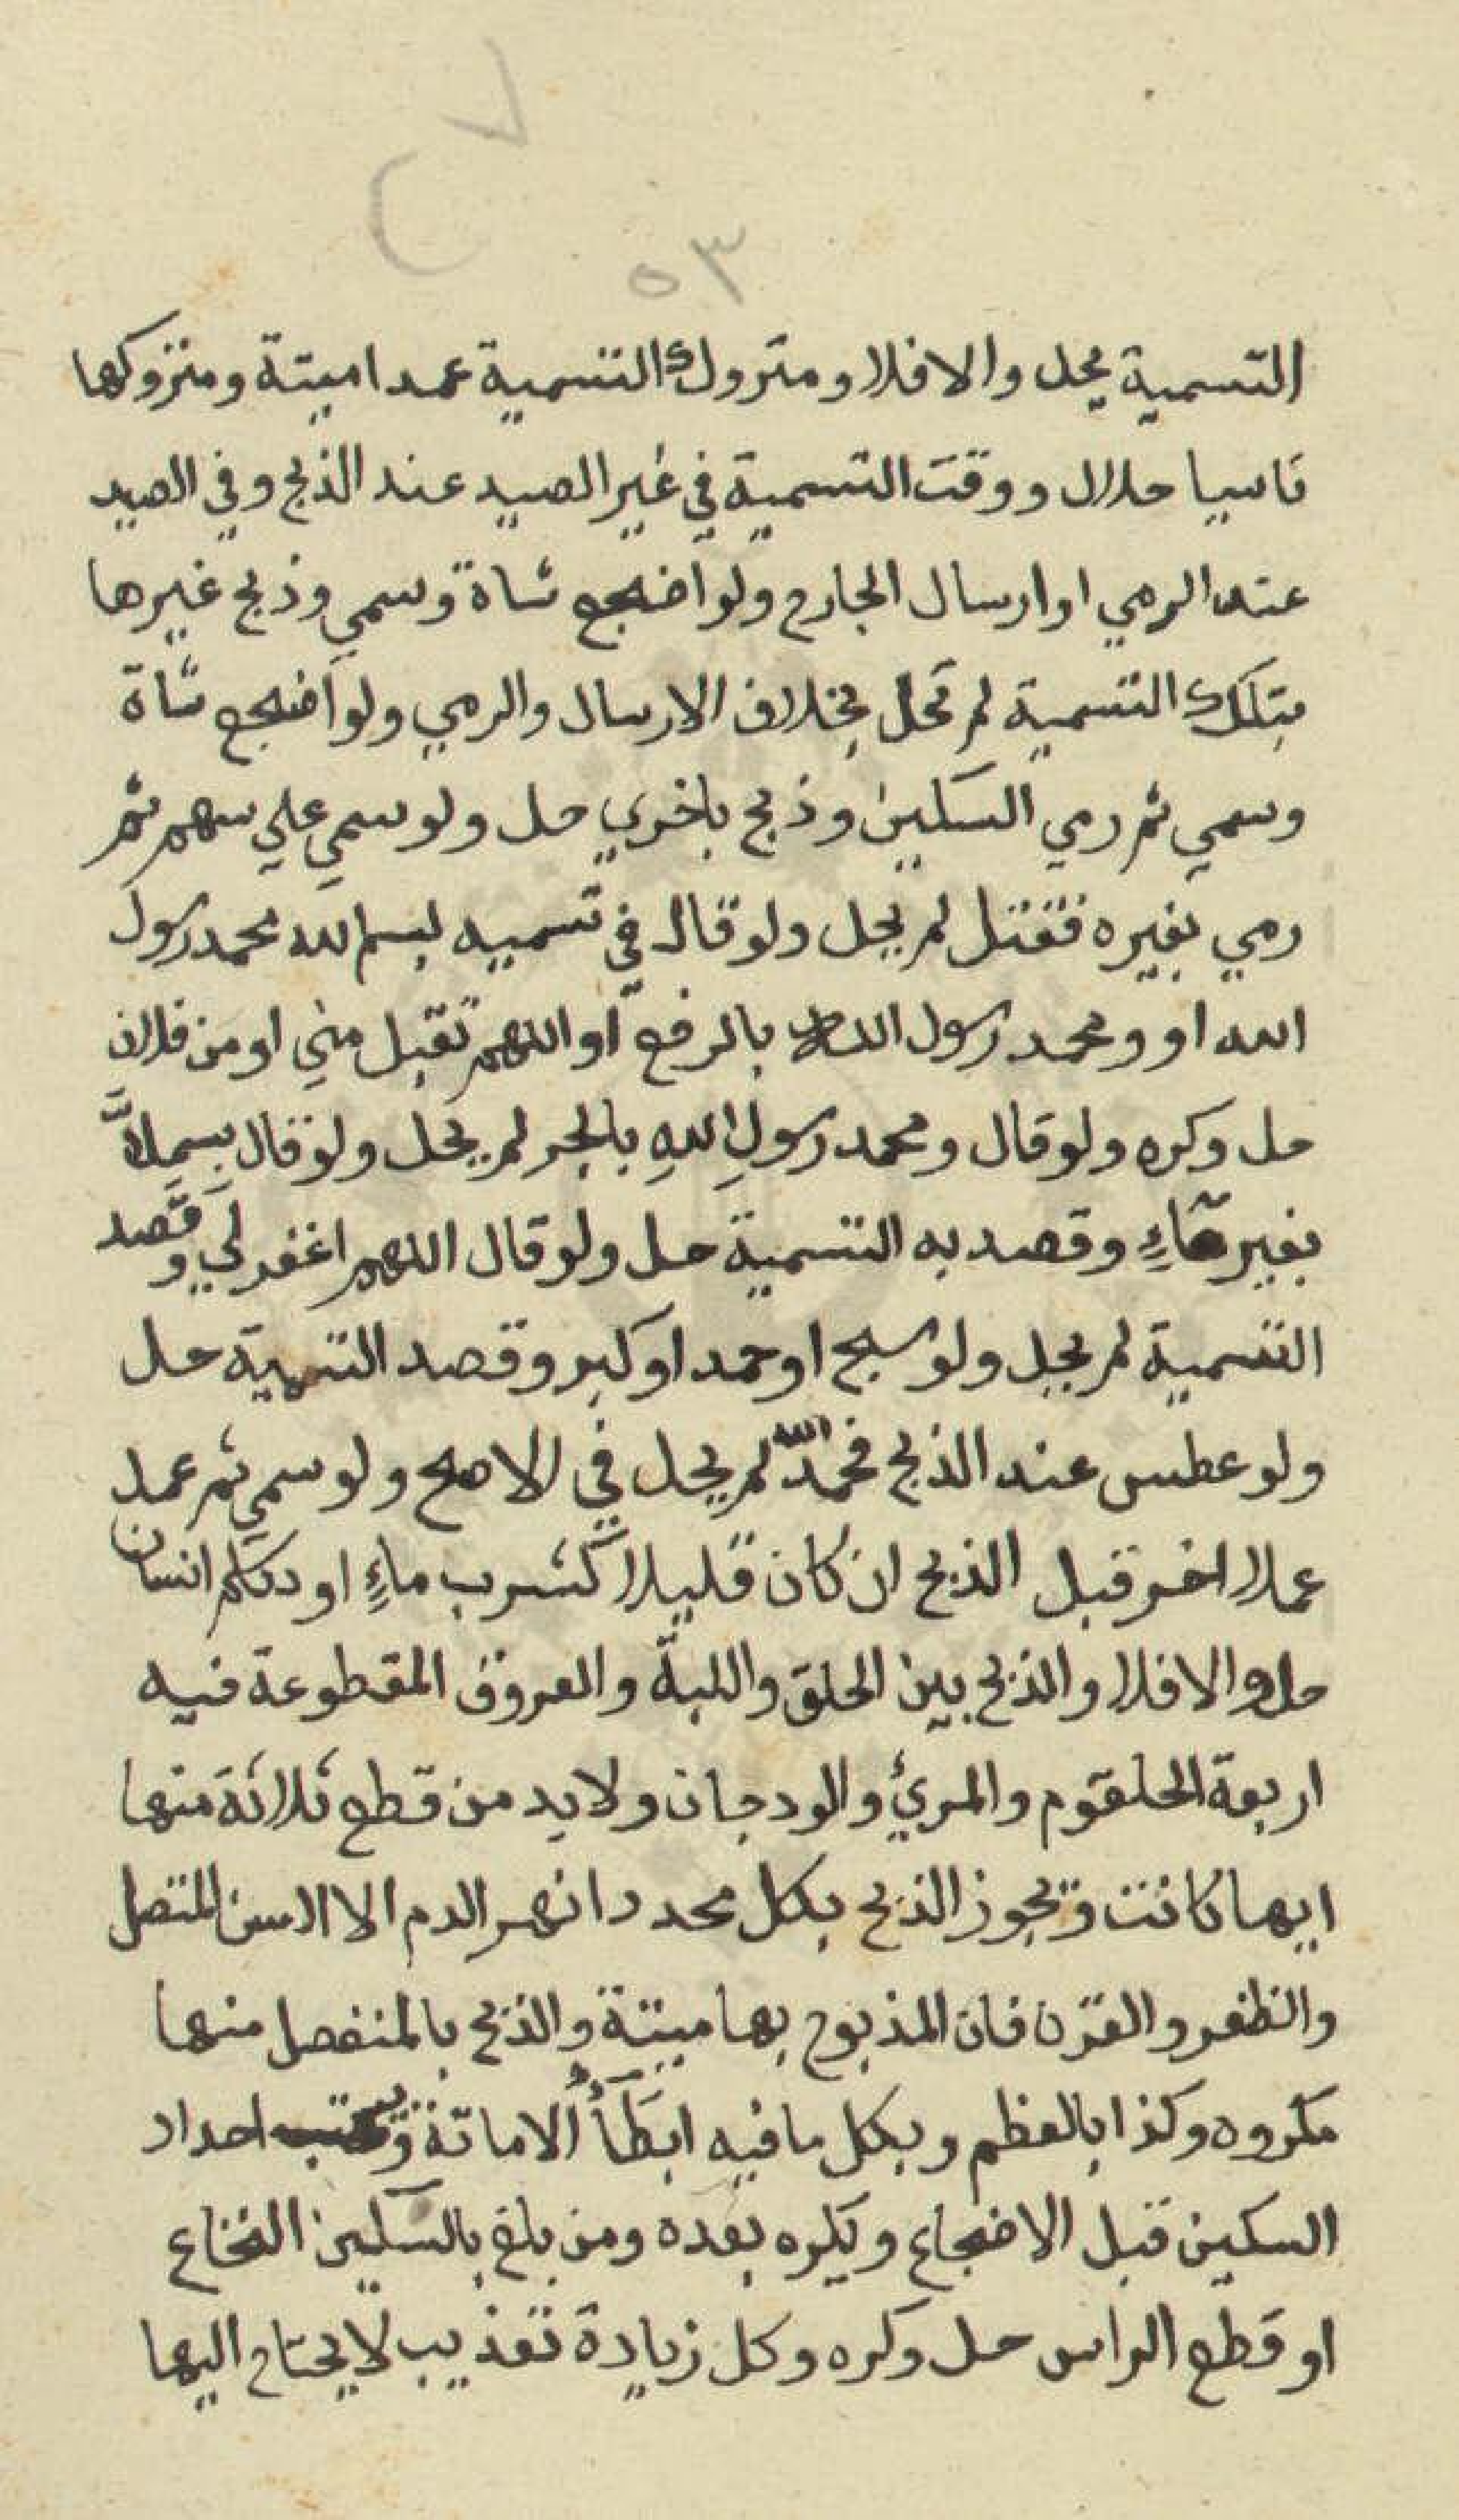 ٥٣
التسمية يحل والا فلا ومتروك التسمية عمدا ميتة ومتروكها
ناسيا حلال ووقت التسمية في غير الصيد عند الذبح وفي الصيد
عند الرمي او ارسال الجارح ولو اضجع شاة وسمي وذبح غيرها
بتلك التسمية لم تحل بخلاف الارسال والرمي ولو اضجع شاة
وسمي ثم رمي السكين وذبح باخري حل ولو سمي علي سهم ثم
رمي بغيره فقتل لم يحل ولو قال في تسميه بسم الله محمد رسول
الله او ومحمد رسول الله بالرفع او اللهم تقبل مني او من فلان
حل وكره ولو قال ومحمد رسولِ اللهِ بالجر لم يحل ولو قال بسمِلاَّ
بغير هاءٍ وقصد به التسمية حل ولو قال اللهم اغفر لي وقصد
التسمية لم يحل ولو سبح او حمد او كبر وقصد التسمية حل
ولو عطس عند الذبح فحمد الله لم يحل في الاصح ولو سمي ثم عمل
عملا اخر قبل الذبح ان كان قليلا كشرب ماءٍ او تكلم انسان
حل والا فلا والذبح بين الحلق واللبة والعروق المقطوعة فيه
اربعة الحلقوم والمريء والودجان ولا بد من قطع ثلاثة منها
ايها كانت ويجوز الذبح بكل محدد انهر الدم الا السن المتصل
والظفر والقرن فان المذبوح بها ميتة والذبح بالمنفصل منها
مكروه وكذا بالعظم وبكل ما فيه ابطَأُ الاماتة ويستحب احداد
السكين قبل الاضجاع ويكره بعده ومن بلغ بالسكين النخاع
او قطع الراس حل وكره وكل زيادة تعذيب لا يحتاج اليها